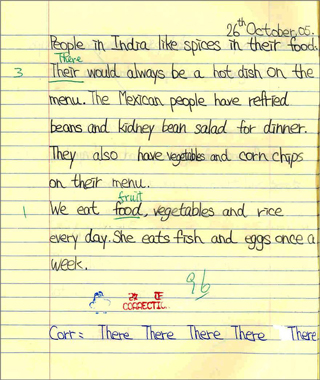 26th October, 05.
People in India like spices in their food.
There
3 Their would always be a hot dish on the
menu. The Mexican people have refried
beans and kidney bean salad for dinner.
They also have vegetables and corn chips
on their menu.
fruit
1 We eat food, vegetables and rice
every day. She eats fish and eggs once a
week.
96
Corr: There There There There There